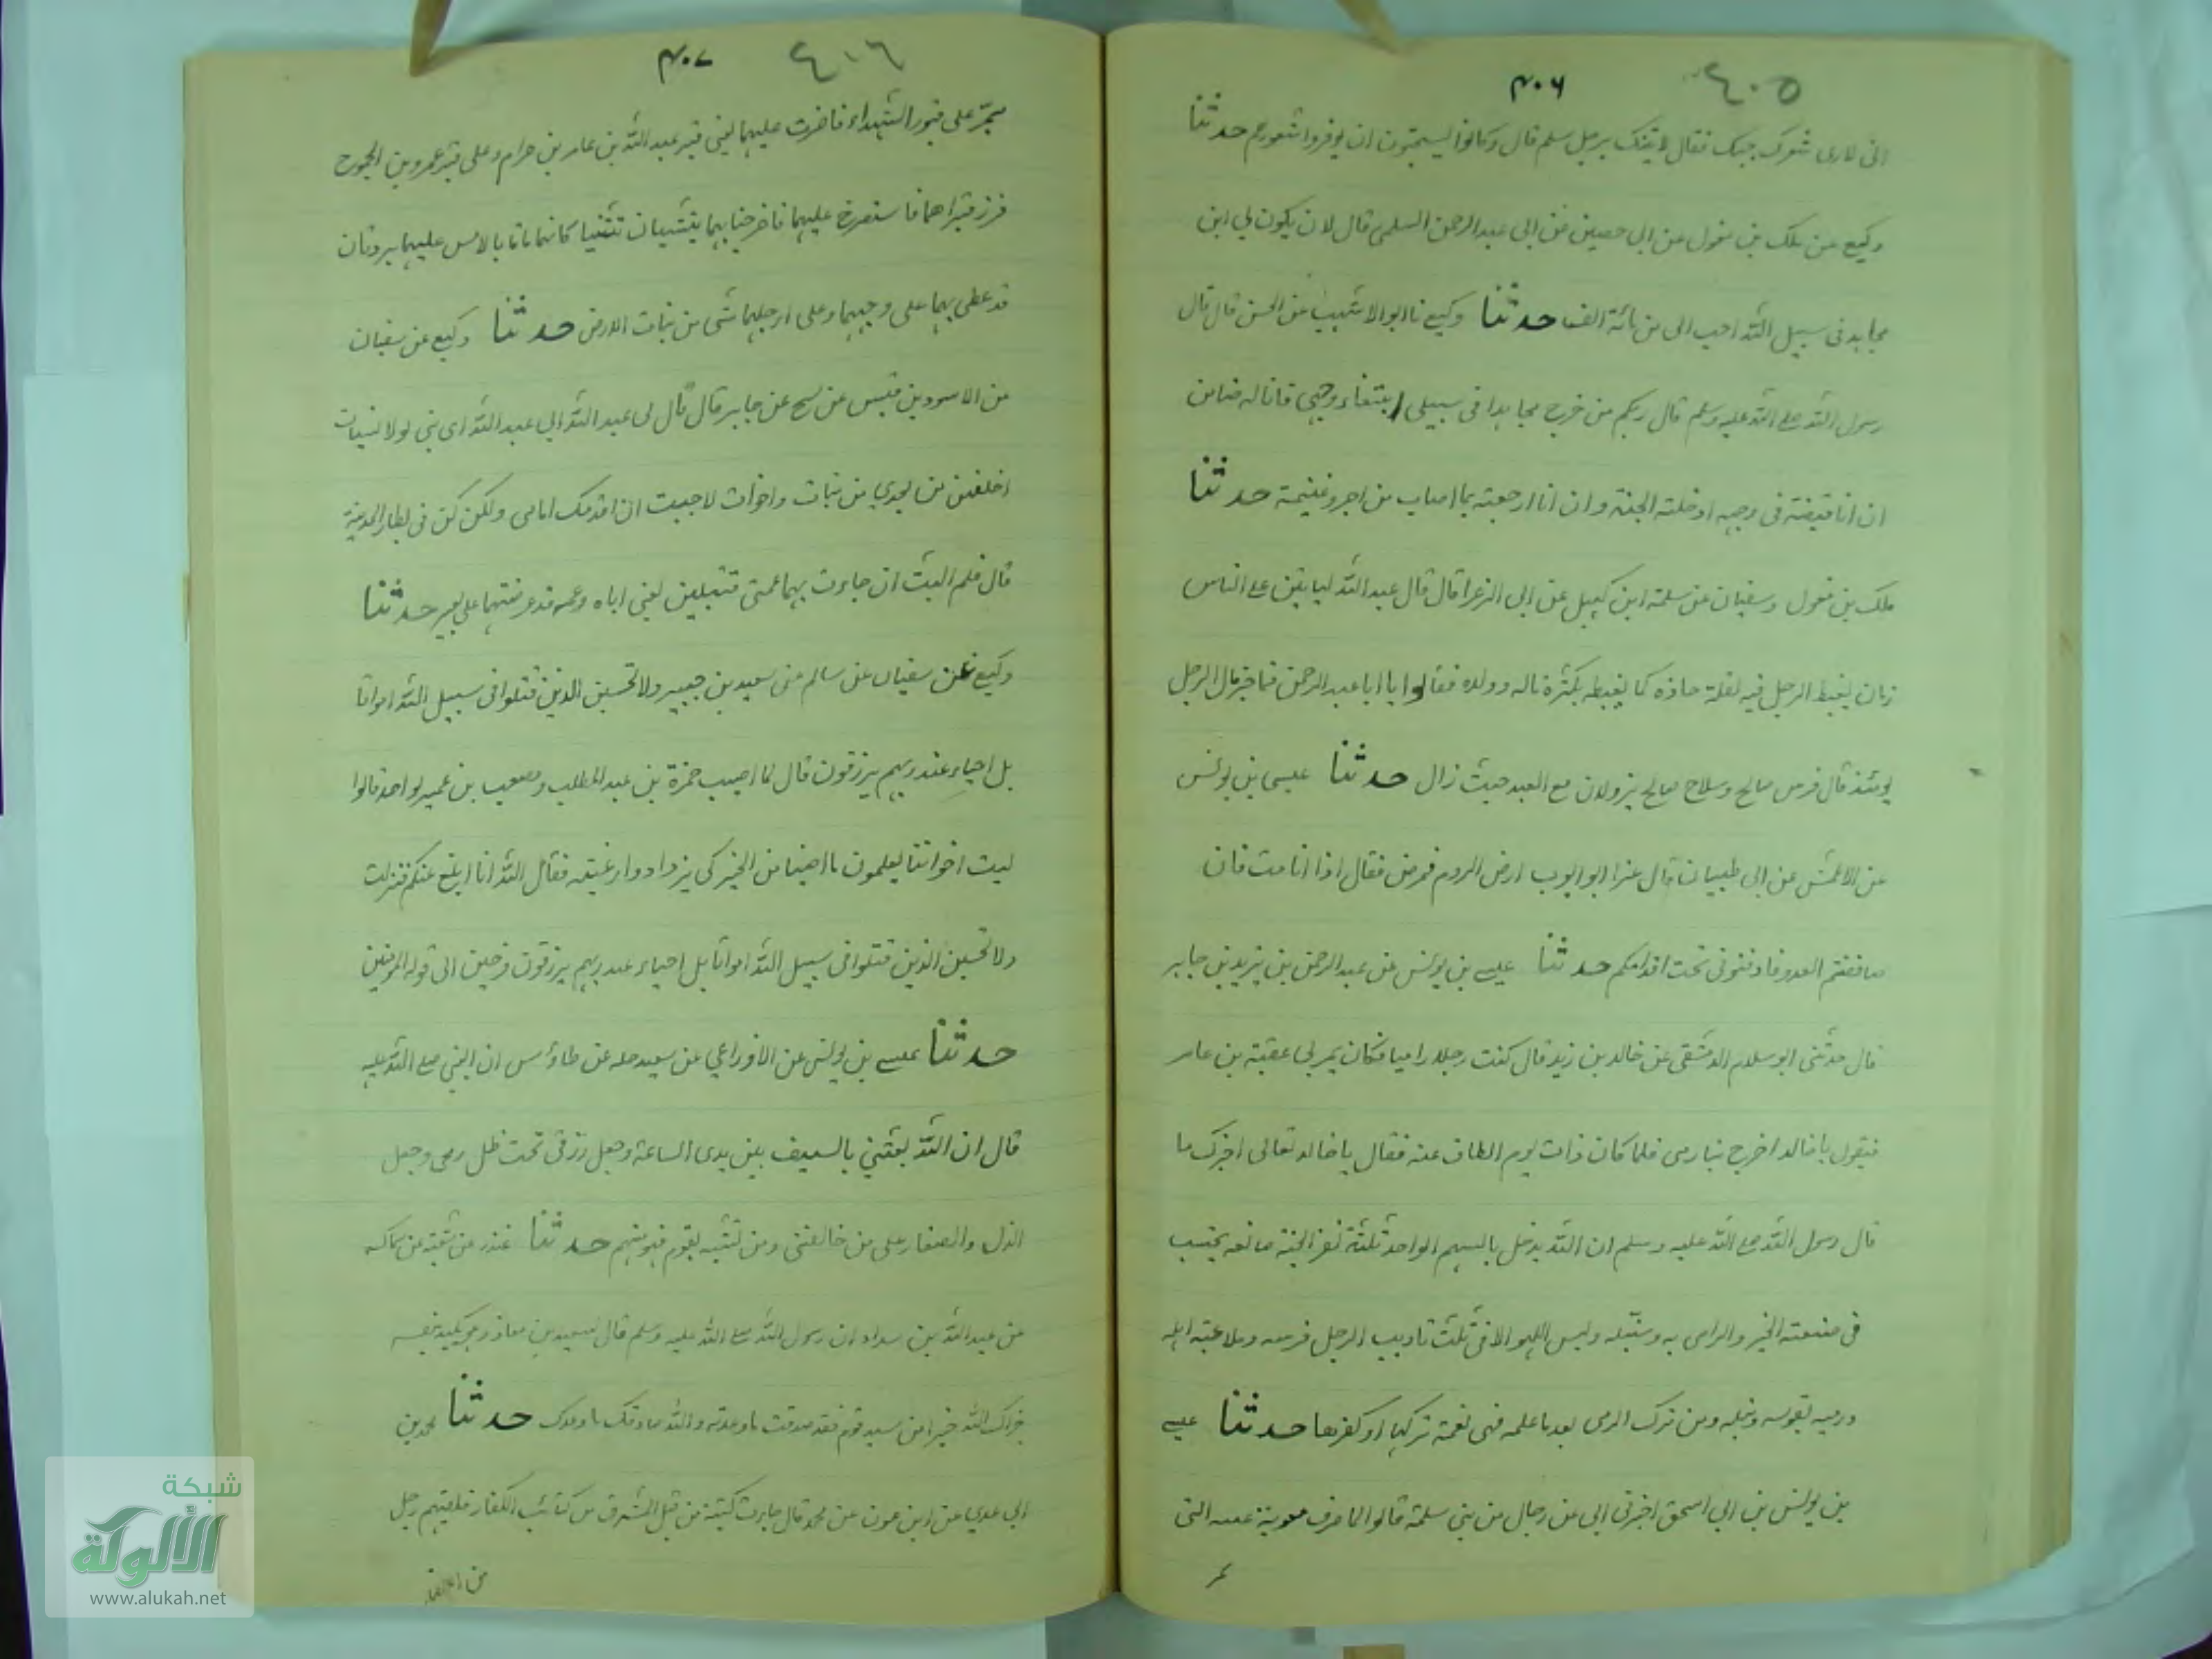 ٤٠٥ ۴۰۶
انى لارى شعرك حبسك فقال لا يتنك برجل سلم قال وكانوا يستحبون ان يوفروا شعورهم حدثنا
وكيع عن ملك بن مغول عن ابى حصين عن ابى عبد الرحمن السلمى قال لان يكون لي ابن
مجاهد فى سبيل الله احب الى من مائة الف حدثنا وكيع نا ابو الاشهب عن الحسن قال قال
رسول الله صلى الله عليه وسلم قال ربكم من خرج مجاهدا فى سبيلى ابتغاء وجهى فانا له ضامن
ان انا قبضته فى وجهه ادخلته الجنة وان انا ارجعته بما اصاب من اجر وغنيمة حدثنا
ملك بن مغول وسفيان عن سلمة ابن كهيل عن ابى الزعرا قال قال عبد الله ليا يتين على الناس
زمان يغبط الرجل فيه لقلة حاذه كما يغبطه بكثرة ماله وولده فقالوا يا ابا عبد الرحمن فما خير مال الرجل
يومئذ قال فرس صالح وسلاح صالح يزولان مع العبد حيث زال حدثنا عيسى بن يونس
عن الاعمش عن ابى ظبيان قال غزا ابو ايوب ارض الروم فمرض فقال اذا انا مت فان
صاففتم العدو فادفنونى تحت اقدامكم حدثنا عيسى بن يونس عن عبد الرحمن بن يزيد بن جابر
قال حدثنى ابو سلام الدمشقى عن خالد بن زيد قال كنت رجلا راميا فكان يمر بى عقبة بن عامر
فيقول يا خالد اخرج بنا نرمى فلما كان ذات يوم ابطات عنه فقال يا خالد تعالى اخبرك ما
قال رسول الله صلى الله عليه وسلم ان الله يدخل بالسهم الواحد ثلثة نفر الجنة صانعه يحتسب
فى صنعته الخير والرامى به ومنبله وليس اللهو الا فى ثلث تاديب الرجل فرسه وملاعبته اهله
ورميه بقوسه ونبله ومن ترك الرمى بعد ما علمه فهى نعمة تركها او كفرها حدثنا عيسى
بن يونس بن ابى اسحق اخبرنى ابى عن رجال من بنى سلمة قالوا لما صرف معوية عينه التى
٤٠٦ ۴۰۷
تمر على قبور الشهداء فاجرت عليهما يعنى قبر عبد الله بن عامر بن حرام وعلى قبر عمرو بن الجموح
فبرز قبراهما فاستصرخ عليهما فاخرجناهما يتثنيان تثنيا كانهما ماتا بالامس عليهما بردتان
قد غطى بهما على وجههما وعلى ارجلهما شى من نبات الارض حدثنا وكيع عن سفيان
عن الاسود بن قيس عن نبيح عن جابر قال قال لى عبد الله ابى عبد الله اى بنى لولا نسيات
اخلفهن من بعدي من بنات واخوات لاحببت ان اقدمك امامى ولكن كن فى نظار المدينة
قال فلم البث ان جاءت بهما عمتى قتيلين يعنى اباه وعمه قد عرضتهما على بعير حدثنا
وكيع عن سفيان عن سالم عن سعيد بن جبير ولا تحسبن الذين قتلوا فى سبيل الله امواتا
بل احياء عند ربهم يرزقون قال لما اصيب حمزة بن عبد المطلب ومصعب بن عمير يوم احد قالوا
ليت اخواننا يعلمون ما اصبنا من الخير كى يزدادوا رغبة فقال الله انا ابلغ عنكم فنزلت
ولا تحسبن الذين قتلوا فى سبيل الله امواتا بل احياء عند ربهم يرزقون فرحين الى قوله المومنين
حدثنا عيسى بن يونس عن الاوزاعي عن سعيد جبله عن طاؤس ان النبى صلى الله عليه
قال ان الله بعثنى بالسيف بين يدى الساعة وجعل رزقى تحت ظل رمحى وجعل
الذل والصغار على من خالفنى ومن تشبه بقوم فهو منهم حدثنا غندر عن شعبة عن سماك
عن عبد الله بن سداد ان رسول الله صلى الله عليه وسلم قال لسعد بن معاذ وهو يكيد بنفسه
جزاك الله خيرا من سيد قوم فقد صدقت ما وعدته والله صادقك ما وعدك حدثنا محمد بن
ابى عدي عن ابن عون عن محمد قال جاءت كتيبة من قبل المشرق من كتائب الكفار فلقيهم رجل
من الانصار
شبكة
الألوكة
www.alukah.net